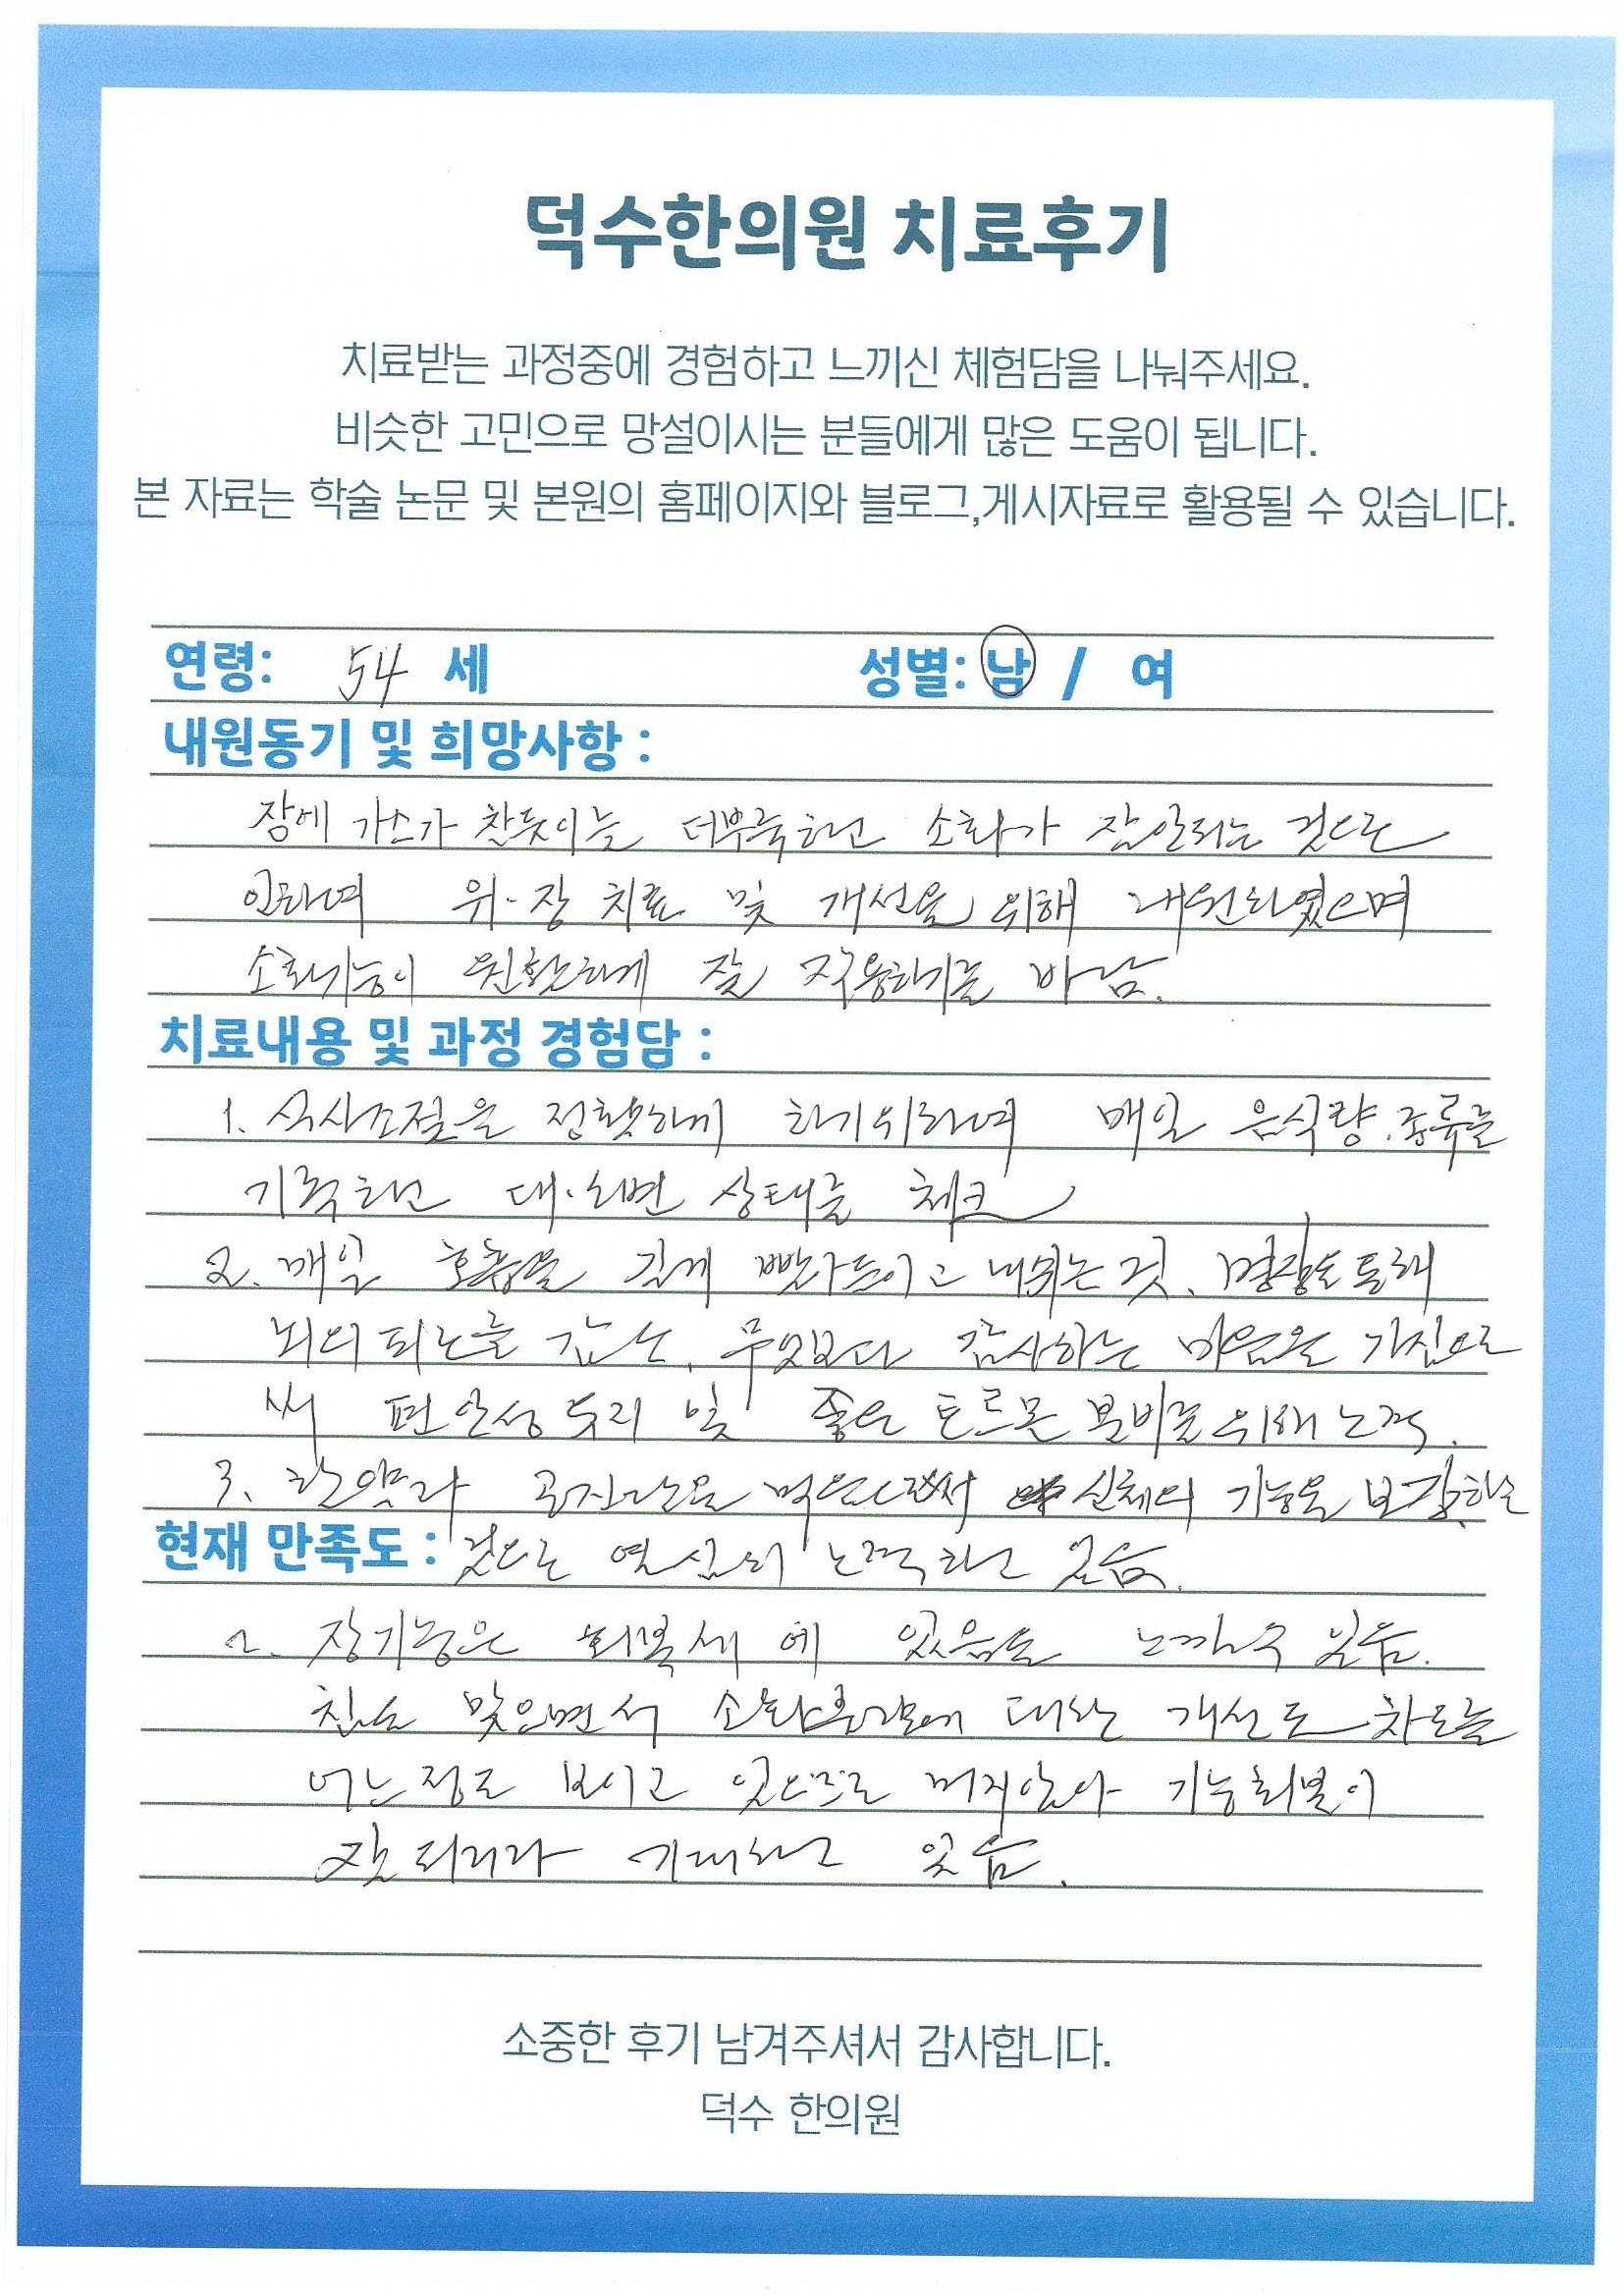 덕수한의원 치료후기
치료받는 과정중에 경험하고 느끼신 체험담을 나눠주세요.
비슷한 고민으로 망설이시는 분들에게 많은 도움이 됩니다.
본 자료는 학술 논문 및 본원의 홈페이지와 블로그,게시자료로 활용될 수 있습니다.
연령: 54 세 성별: 남 / 여
내원동기 및 희망사항 :
장에 가스가 찬듯이 늘 더부룩하고 소화가 잘안되는 것으로
인하여 위·장 치료 및 개선을 위해 내원하였으며
소화기능이 원활하게 잘 작용하기를 바람.
치료내용 및 과정 경험담 :
1. 식사조절을 정확하게 하기위하여 매일 음식량.종류를
기록하고 대.소변 상태를 체크
2. 매일 호흡을 깊게 빨아들이고 내쉬는 것, 명상을 통해
뇌의 피로를 감소, 무엇보다 감사하는 마음을 가짐으로
써 편안성 유지 및 좋은 호르몬 분비를 위해 노력.
3. 한약과 공진단을 먹으면서 신체의 기능을 보강하는
현재 만족도 : 것으로 열심히 노력하고 있음.
장기능은 회복세에 있음을 느끼고 있음.
침을 맞으면서 대한 개선도 차도를
어느정도 보이고 있으므로 머지않아 기능회복이
잘 되리라 기대하고 있음.
소중한 후기 남겨주셔서 감사합니다.
덕수 한의원